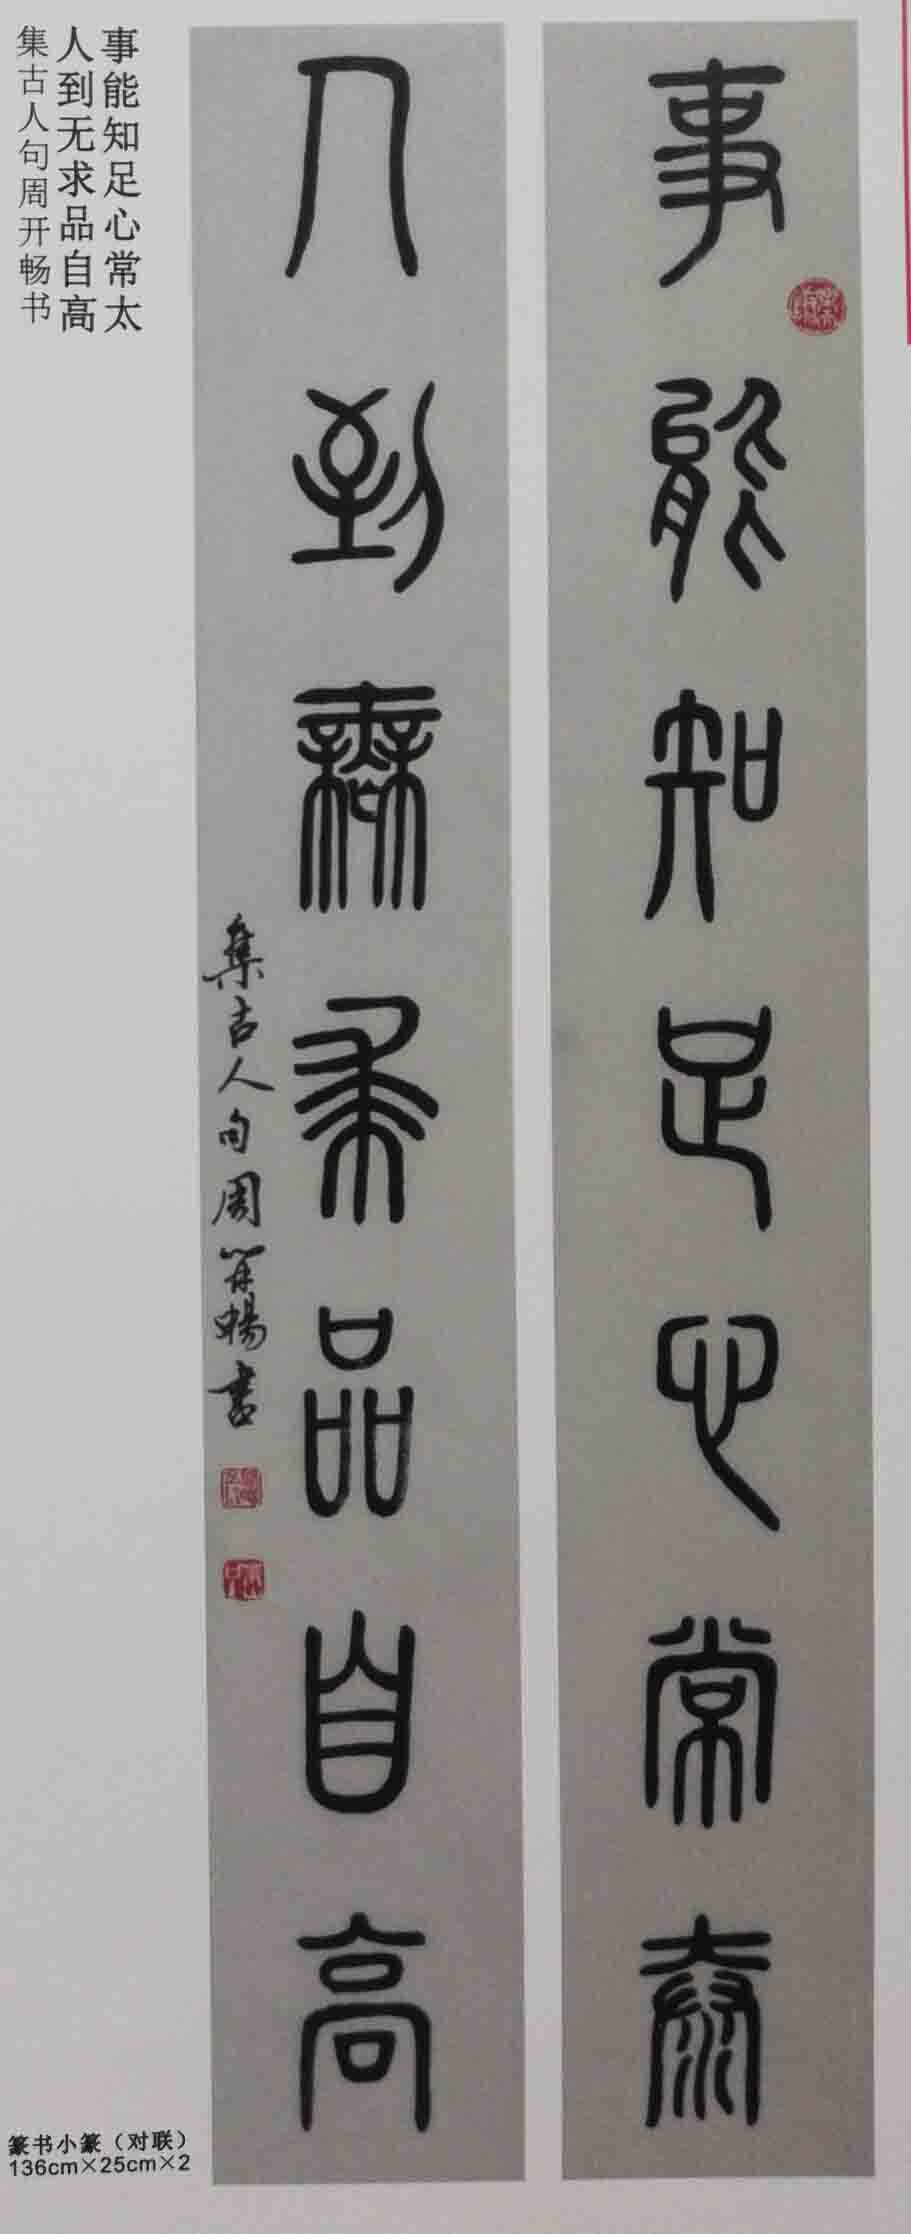 事能知足心常泰
人到無求品自高
集古人句周開暢書
事能知足心常太
人到无求品自高
集古人句周开畅书
篆书小篆（对联）
136cm×25cm×2